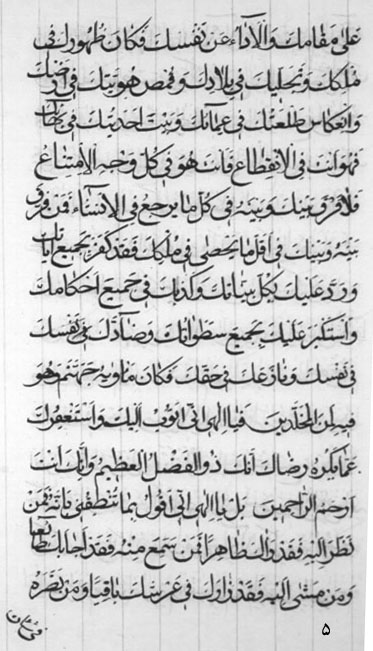 على مقامك والاداء عن نفسك فكان ظهورك في
ملكك وتجليك في بلادك وقمص هويتك في ارضك
وانعكاس طلعتك في عمائك وبيت احديتك في
فهو انت في الانقطاع فانت هو في كل وجه الامتناع
فلا فرق بينك وبينه في كل ما يرجع في الانشاء فمن فرق
بينه وبينك في اقل ما يحصى في ملكك فقد كفر بجميع اياتك
ورد عليك بكل بيناتك وكذبك في جميع احكامك
واستكبر عليك بجميع سطواتك وضادك في نفسك
في نفسك ونازعك في حقك فكان ماويه جهنم وهو
فيه لمن المخلدين فيا الهي اني اتوب اليك واستغفرك
عما يكره رضاك انك ذو الفضل العظيم وانك انت
ارحم الراحمين بل يا الهي اني اقول بما تنطقني بانه فمن
نظر اليه فقد راك ظاهرا فمن سمع منه فقد اجابك طائعا
ومن مشى اليه فقد زارك في عرشك باقيا ومن نصره
۵